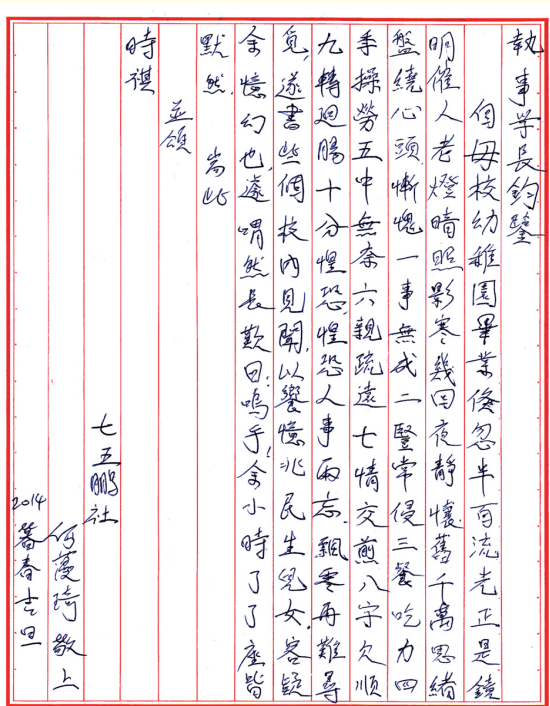 執事学長鈞鑒
自母校幼稚園畢業倏忽半百流光正是鏡
明催人老燈暗照影寒幾回夜靜懷舊千萬思緒
盤繞心頭慚愧一事無成二豎常侵三餐吃力四
手操勞五中無奈六親疏遠七情交煎八字欠順
九轉迴腸十分惶恐惶恐人事兩忘飄零再難尋
覓遂書些個校內見聞以饗憶兆民生兒女客疑
余憶幻也遽喟然長歎曰嗚乎余小時了了座皆
默然 耑此
並頌
時祺
七五鵬社
何蔓琦敬上
2014暮春吉旦